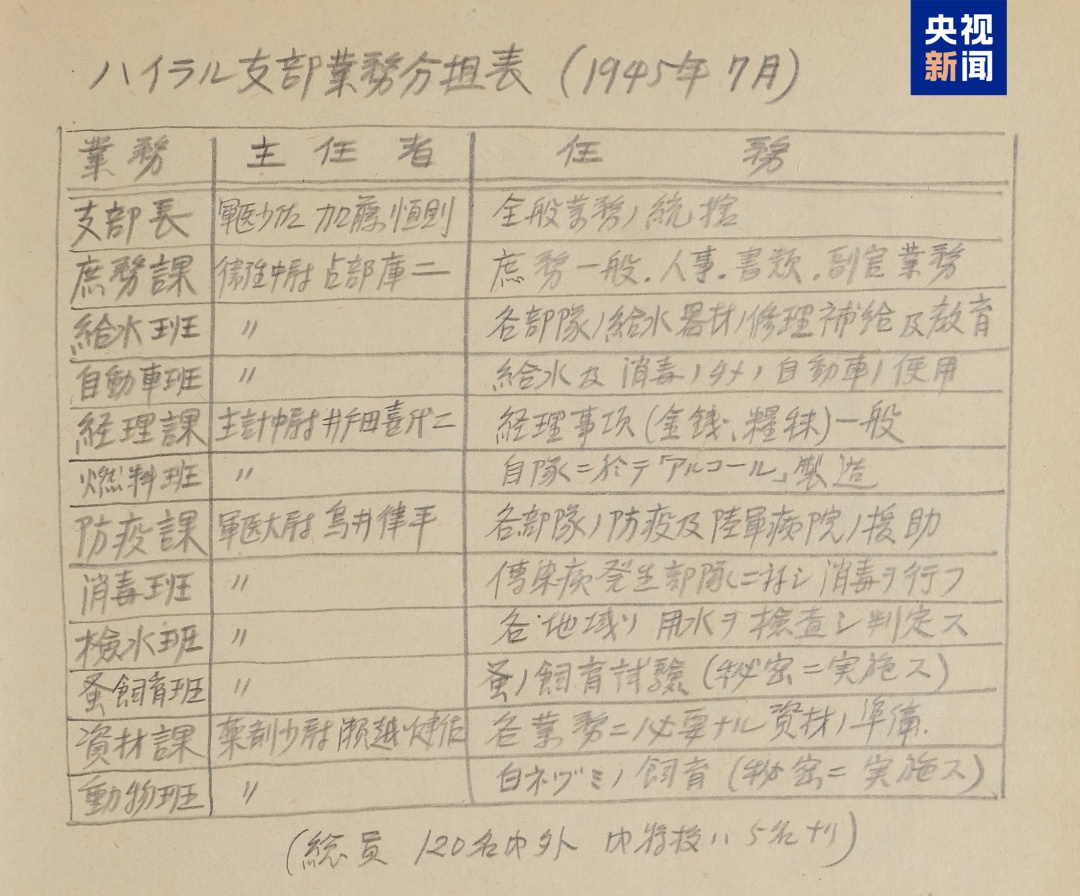 央视
新闻
ハイラル支部業務分担表 (1945年 7月)
業務 主任者 任務
支部長 軍医少佐 加藤恒則 全般業務ノ統捨
庶務課 衛生中尉 占部庫二 庶務一般.人事.書類.副官業務
給水班 〃 各部隊ノ給水器材ノ修理補給及教育
自動車班 〃 給水及消毒ノタメノ自動車ノ使用
経理課 主計中尉 井戸田喜代二 経理事項(金銭、糧秣)一般
燃料班 〃 自隊ニ於テ「アルコール」製造
防疫課 軍医大尉 鳥井律平 各部隊ノ防疫及陸軍病院ノ援助
消毒班 〃 傳染病発生部隊ニ対シ消毒ヲ行フ
檢水班 〃 各地域ノ用水ヲ檢査シ判定ス
蚤飼育班 〃 蚤ノ飼育試験(秘密ニ実施ス)
資材課 薬剤少尉 瀬越健佐 各業務ニ必要ナル資材ノ準備.
動物班 〃 白ネヅミノ飼育(秘密ニ実施ス)
(総員 120名内外 内将校ハ5名ナリ)